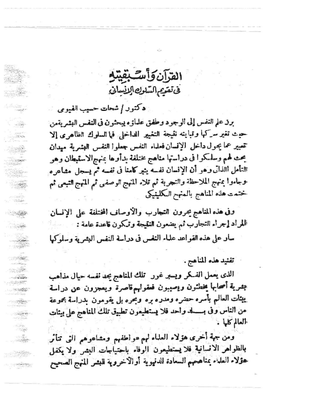 القرآن وأسبقيته
فى تقويم السلوك الإنسانى
دكتور / شحات حسيب الفيومى
برز علم النفس إلى الوجود وطفق علماؤه يبحثون فى النفس البشرية من
حيث تغير سلوكها وثباته نتيجة التغيير الداخلى فما السلوك الظاهرى إلا
تعبير عما يجول داخل الإنسان فعلماء النفس جعلوا النفس البشرية ميدان
بحث لهم وسلكوا فى دراستها مناهج مختلفة بدأوها بمنهج الاستبطان وهو
التأمل الذاتى وهو أن الإنسان نفسه يثير كامنا فى نفسه ثم يسجل مشاعره
وجاءوا بمنهج الملاحظة والتجربة ثم تلاه المنهج الوصفى ثم المنهج التتبعى ثم
ختمت هذه المناهج بالمنهج الكلينيكى
وفى هذه المناهج يجرون التجارب والأوصاف المختلفة على الإنسان
المراد إجراء التجارب ثم يضعون النتيجة وتكون قاعدة عامة :
سار على هذه القواعد علماء النفس فى دراسة النفس البشرية وسلوكها
تفنيد هذه المناهج .
الذى يعمل الفكر ويسبر غور تلك المناهج يجد نفسه حيال مذاهب
بشرية أصحابها يخطئون ويصيبون فعقولهم قاصرة ويعجزون عن دراسة
بيئات العالم بأسره حضره ومدره بره وبحره بل يقومون بدراسة مجموعة
من الناس وفى بلد واحد فلا يستطيعون تطبيق تلك المناهج على بيئات
العالم كلها .
ومن جهة أخرى هؤلاء العلماء لهم عواطفهم ومشاعرهم التى تتأثر
بالظواهر الانسانية فلا يستطيعون الوفاء باحتياجات البشر ولا يكفل
هؤلاء العلماء بمناهجهم السعادة الدنيوية أو الأخروية للبشر المنهج الصحيح